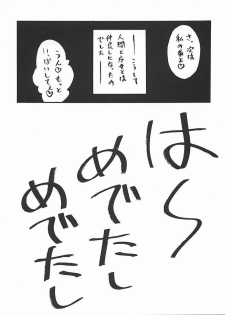 さ、次は
私の番よ♡
――こうして
人間と
仲良しになったの
でした――
うん♡もっと
いっぱいしてぇ♡
は〜
めでたし
めでたし